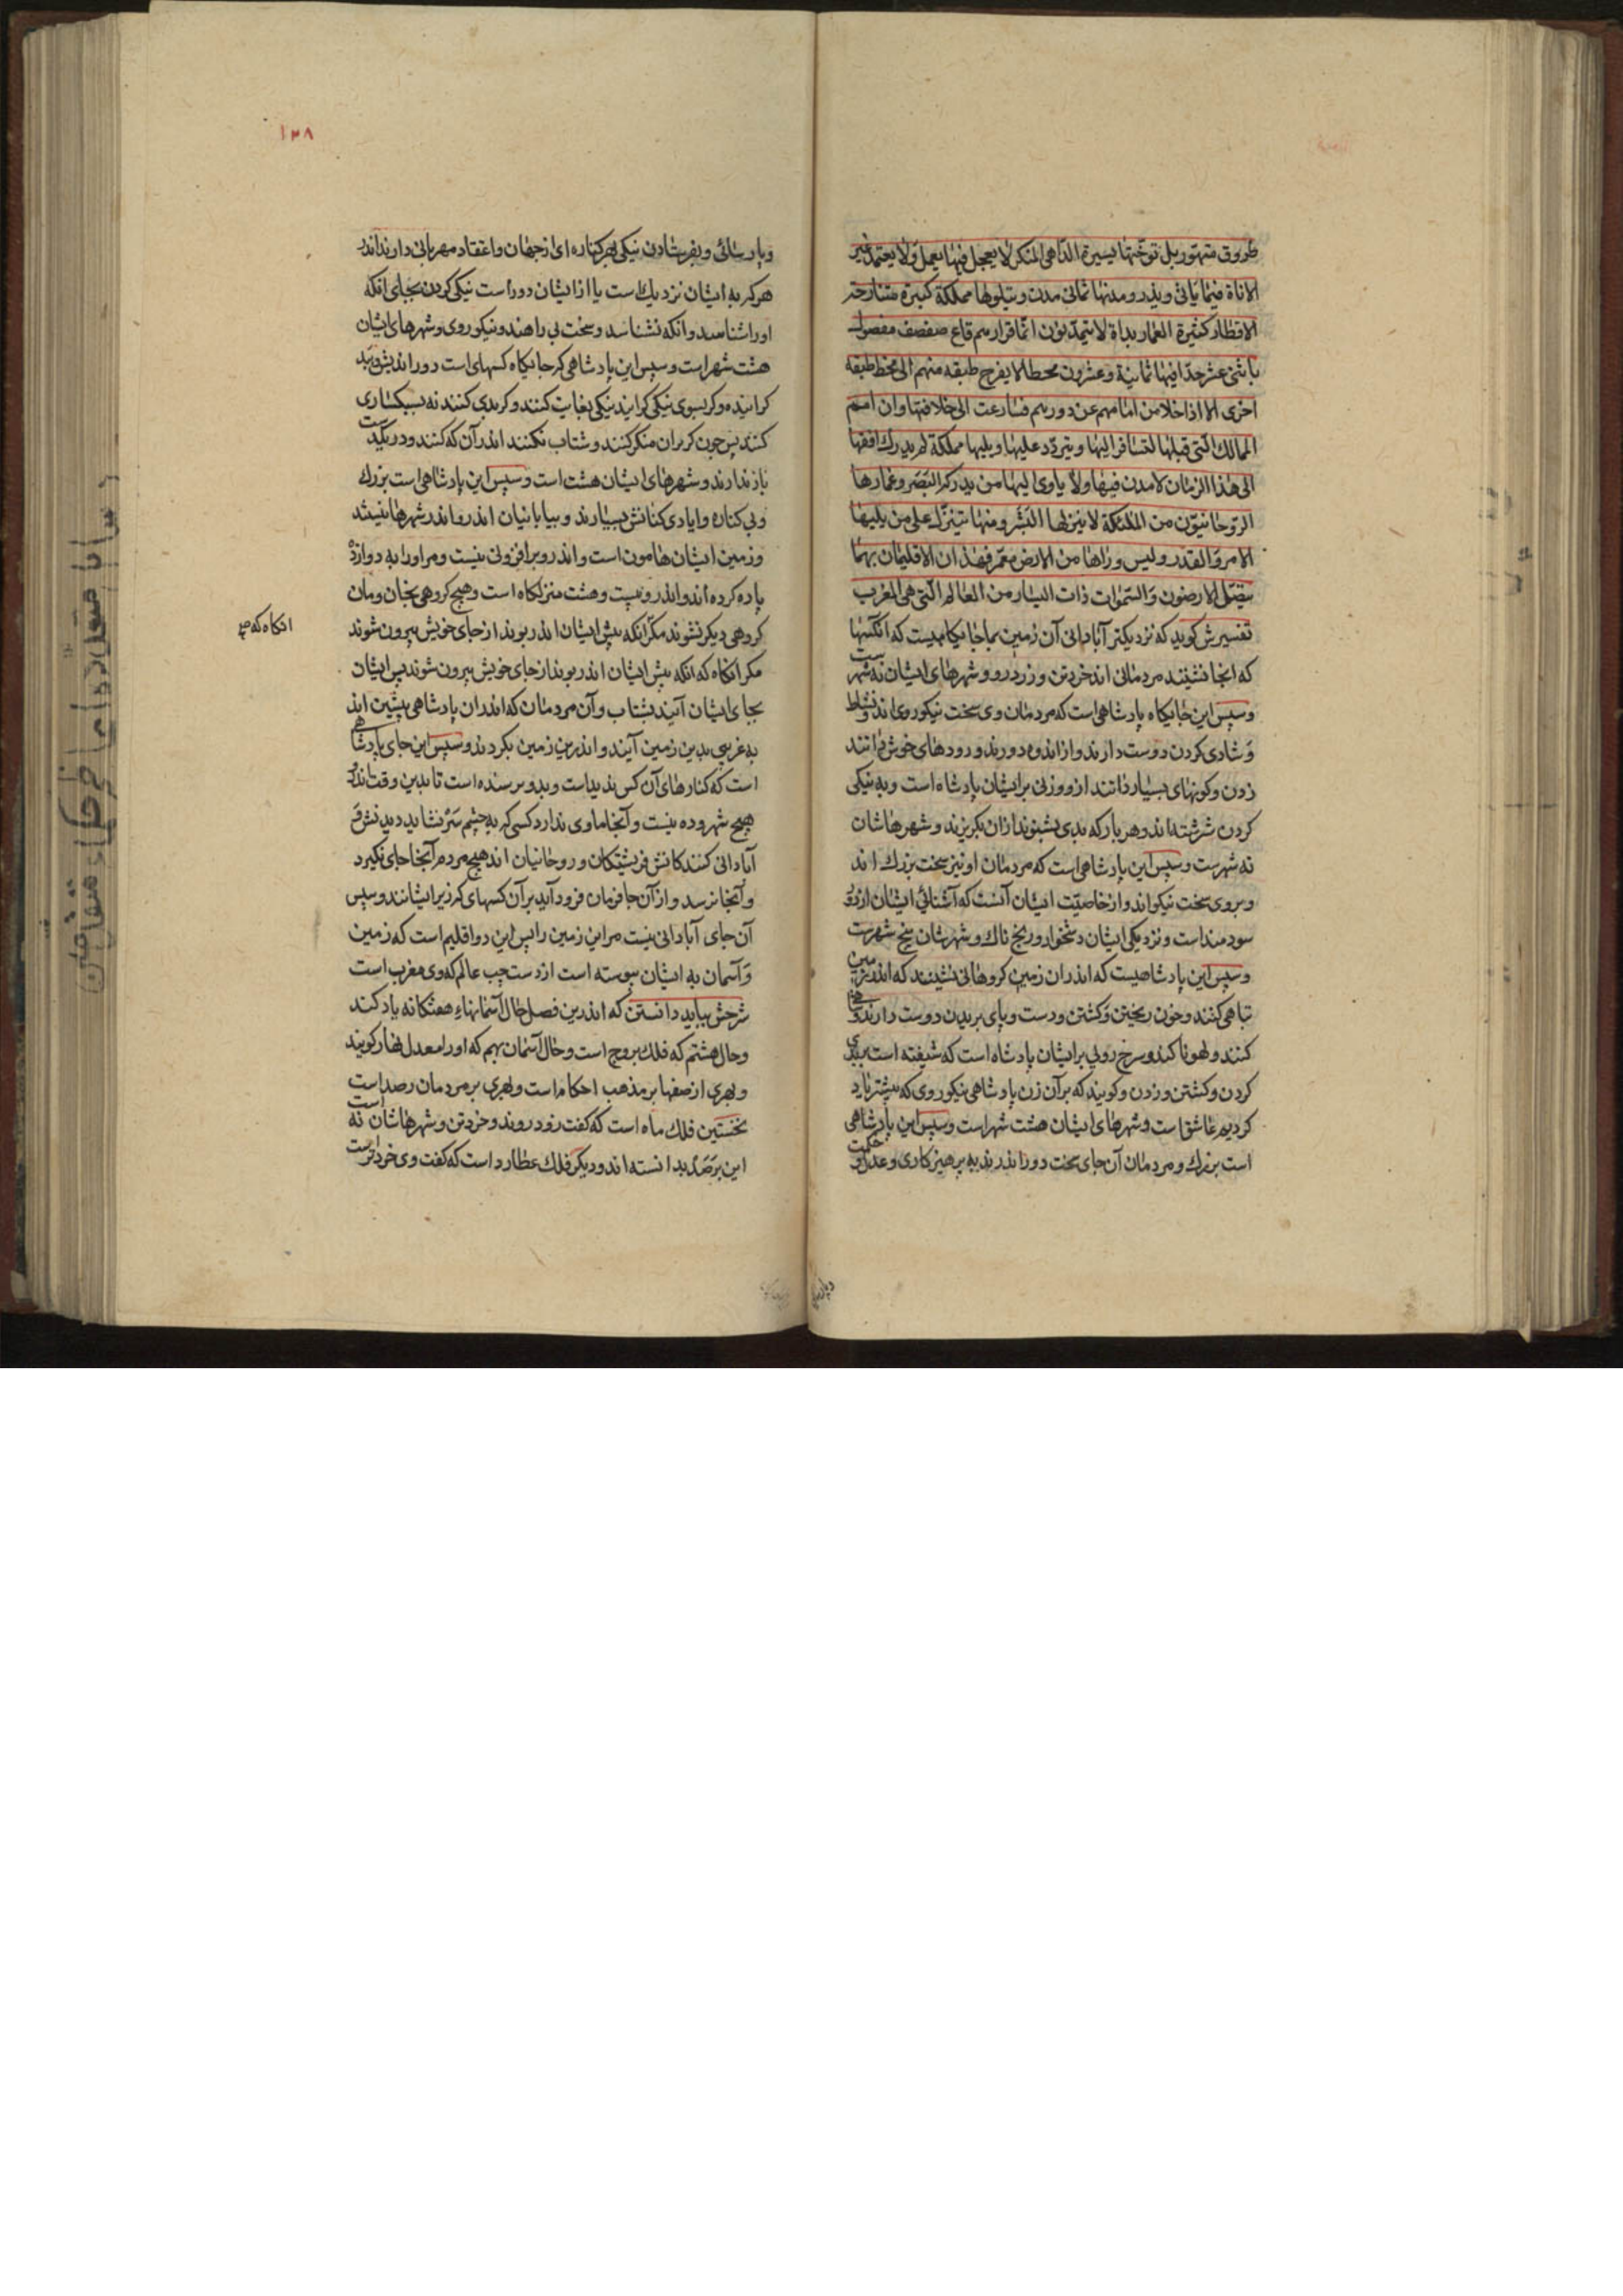 طروق متهور بل توختها بسيرة الداهي المنكر لا يعجل فيها يعمل ولا يعتمد غير
الاناة فيما ياتي ويذر ومدنها ثماني مدن ويتلوها مملكة كبيرة متنازحة
الاقطار كثيرة العمار بداة لا يتمدنون انما قرارهم قاع صفصف مفصول
باثني عشر حدا فيها ثمانية وعشرون محطا لا يعرج طبقة منهم الى محط طبقة
اخرى الا اذا خلا من امامهم عن دورهم فسارعت الى خلافتها وان امم
الممالك التي قبلها لتسافر اليها ويتردد عليها ويليها مملكة لم يدرك افقها
الى هذا الزمان لا مدن فيها ولا ياوى اليها من يدركه البصر وعمارها
الروحانيون من الملئكة لا ينزلها البشر ومنها يتنزل على من يليها
الامر والقدر وليس وراها من الارض معمر فهذان الاقليمان بهما
يتصل الارضون والسموات ذات اليسار من العالم التي هي المغرب
تفسيرش کوید که نزدیکتر آبادانی آن زمین بما جایکاهیست که آنکسها
که انجا نشینند مردمانی اند خردتن و زودرو و شهرهای ایشان نه شهر ست
وسپس این جایکاه پادشاهی است که مردمان وی سخت نیکوروی اند و نشاط
و شادی کردن دوست دارند و از اندوه دورند و رودهای خوش دانند
زدن و کونهای بسیار دانند ازو و زنی بر ایشان پادشاه است و به نیکی
کردن سرشته اند و هر بار که بدی بشنوند ازان بکریزند و شهرهاشان
نه شهرست و سپس این پادشاهی است که مردمان او نیز سخت بزرک اند
و بروی سخت نیکو اند و از خاصیت ایشان آنست که آشنائی ایشان از دور
سودمند است و نزدیکی ایشان دشخوار و رنج ناک و شهرشان پنج شهرست
و سپس این پادشاهیست که اندران زمین کروهانی نشینند که اندر زمین
تباهی کنند و خون ریختن و کشتن و دست و پای بریدن دوست دارند و
کنند و لهو ناکند و سرخ رویی بر ایشان پادشاه است که شیفته است ببدی
کردن و کشتن و زدن و کویند که بر آن زن پادشاهی نیکوروی که پیشتر یاد
کردیم عاشق است و شهرهای ایشان هشت شهر است و سپس این پادشاهی
است بزرک و مردمان آن جای سخت دور اندرند به پرهیزکاری و عدل و حکمت
و پارسائی و بفرستادن نیکی بهر کناره ای از جهان و اعتقاد مهربانی دارند اندر
هرکه به ایشان نزدیک است یا از ایشان دور است نیکی کردن بجای آنکه
او را شناسد و انکه نشناسد و سخت بی راهند و نیکوروی و شهرهای ایشان
هشت شهر است و سپس این پادشاهی که جایکاه کسهای است دور اندیش و ببد
کراینده و کر بسوی نیکی کرایند نیکی بغایت کنند و کر بدی کنند نه بسبکساری
کنند پس چون کربران منکر کنند و شتاب نکنند اندر آن که کنند و درنکید ست
باز ندارند و شهرهای ایشان هشت است و سپس این پادشاهی است بزرک
و بی کناره و ابادی کنانش بسیارند و بیابانیان اندرو اندر شهرها ننیشند
و زمین ایشان هامون است و اندرو برافزونی نیست و مر او را به دوازده
پاره کرده اند و اندرو بیست و هشت منزلکاه است و هیچ کروهی بخان و مان
کروهی دیکر نشوند مکر آنکه پیش ایشان اندر بوند از جای خویش بیرون شوند
انکاه که صح
مکر آنکاه که آنکه پیش ایشان اندر بوند از جای خویش بیرون شوند پس ایشان
بجای ایشان آیند بشتاب و آن مردمان که اندران پادشاهی پیشین اند
به غریبی بدین زمین آیند و اندرین زمین بکردند و سپس این جای پادشاهی
است که کنارهای آن کس ندیداست و بدو نرسنده است تا بدین وقت اندرو
هیچ شهر و ده نیست و آنجا ماوی ندارد کسی که به چشم سر نشاید دیدنش و
آبادانی کنندکانش فریشتکان و روحانیان اند هیچ مردم آنجا جای نکیرد
و آنجا نرسد و از آن جا فرمان فرود آید بر آن کسهای که زیر ایشانند و سپس
آن جای آبادانی نیست مر این زمین را پس این دو اقلیم است که زمین
و آسمان به ایشان پیوسته است از دست چپ عالم که وی مغرب است
شرحش بباید دانستن که اندرین فصل حال آسمانهاء هفتکانه یاد کند
و حال هشتم که فلک بروج است و حال آسمان نهم که او را معدل نهار کویند
و بهری از صفتها بر مذهب احکام است و بهری بر مردمان رصد است
نخستین فلک ماه است که کفت زودروند و خردتن و شهرهاشان نه است
این برصد بدانسته اند و دیکر فلک عطارد است که کفت وی خردترست